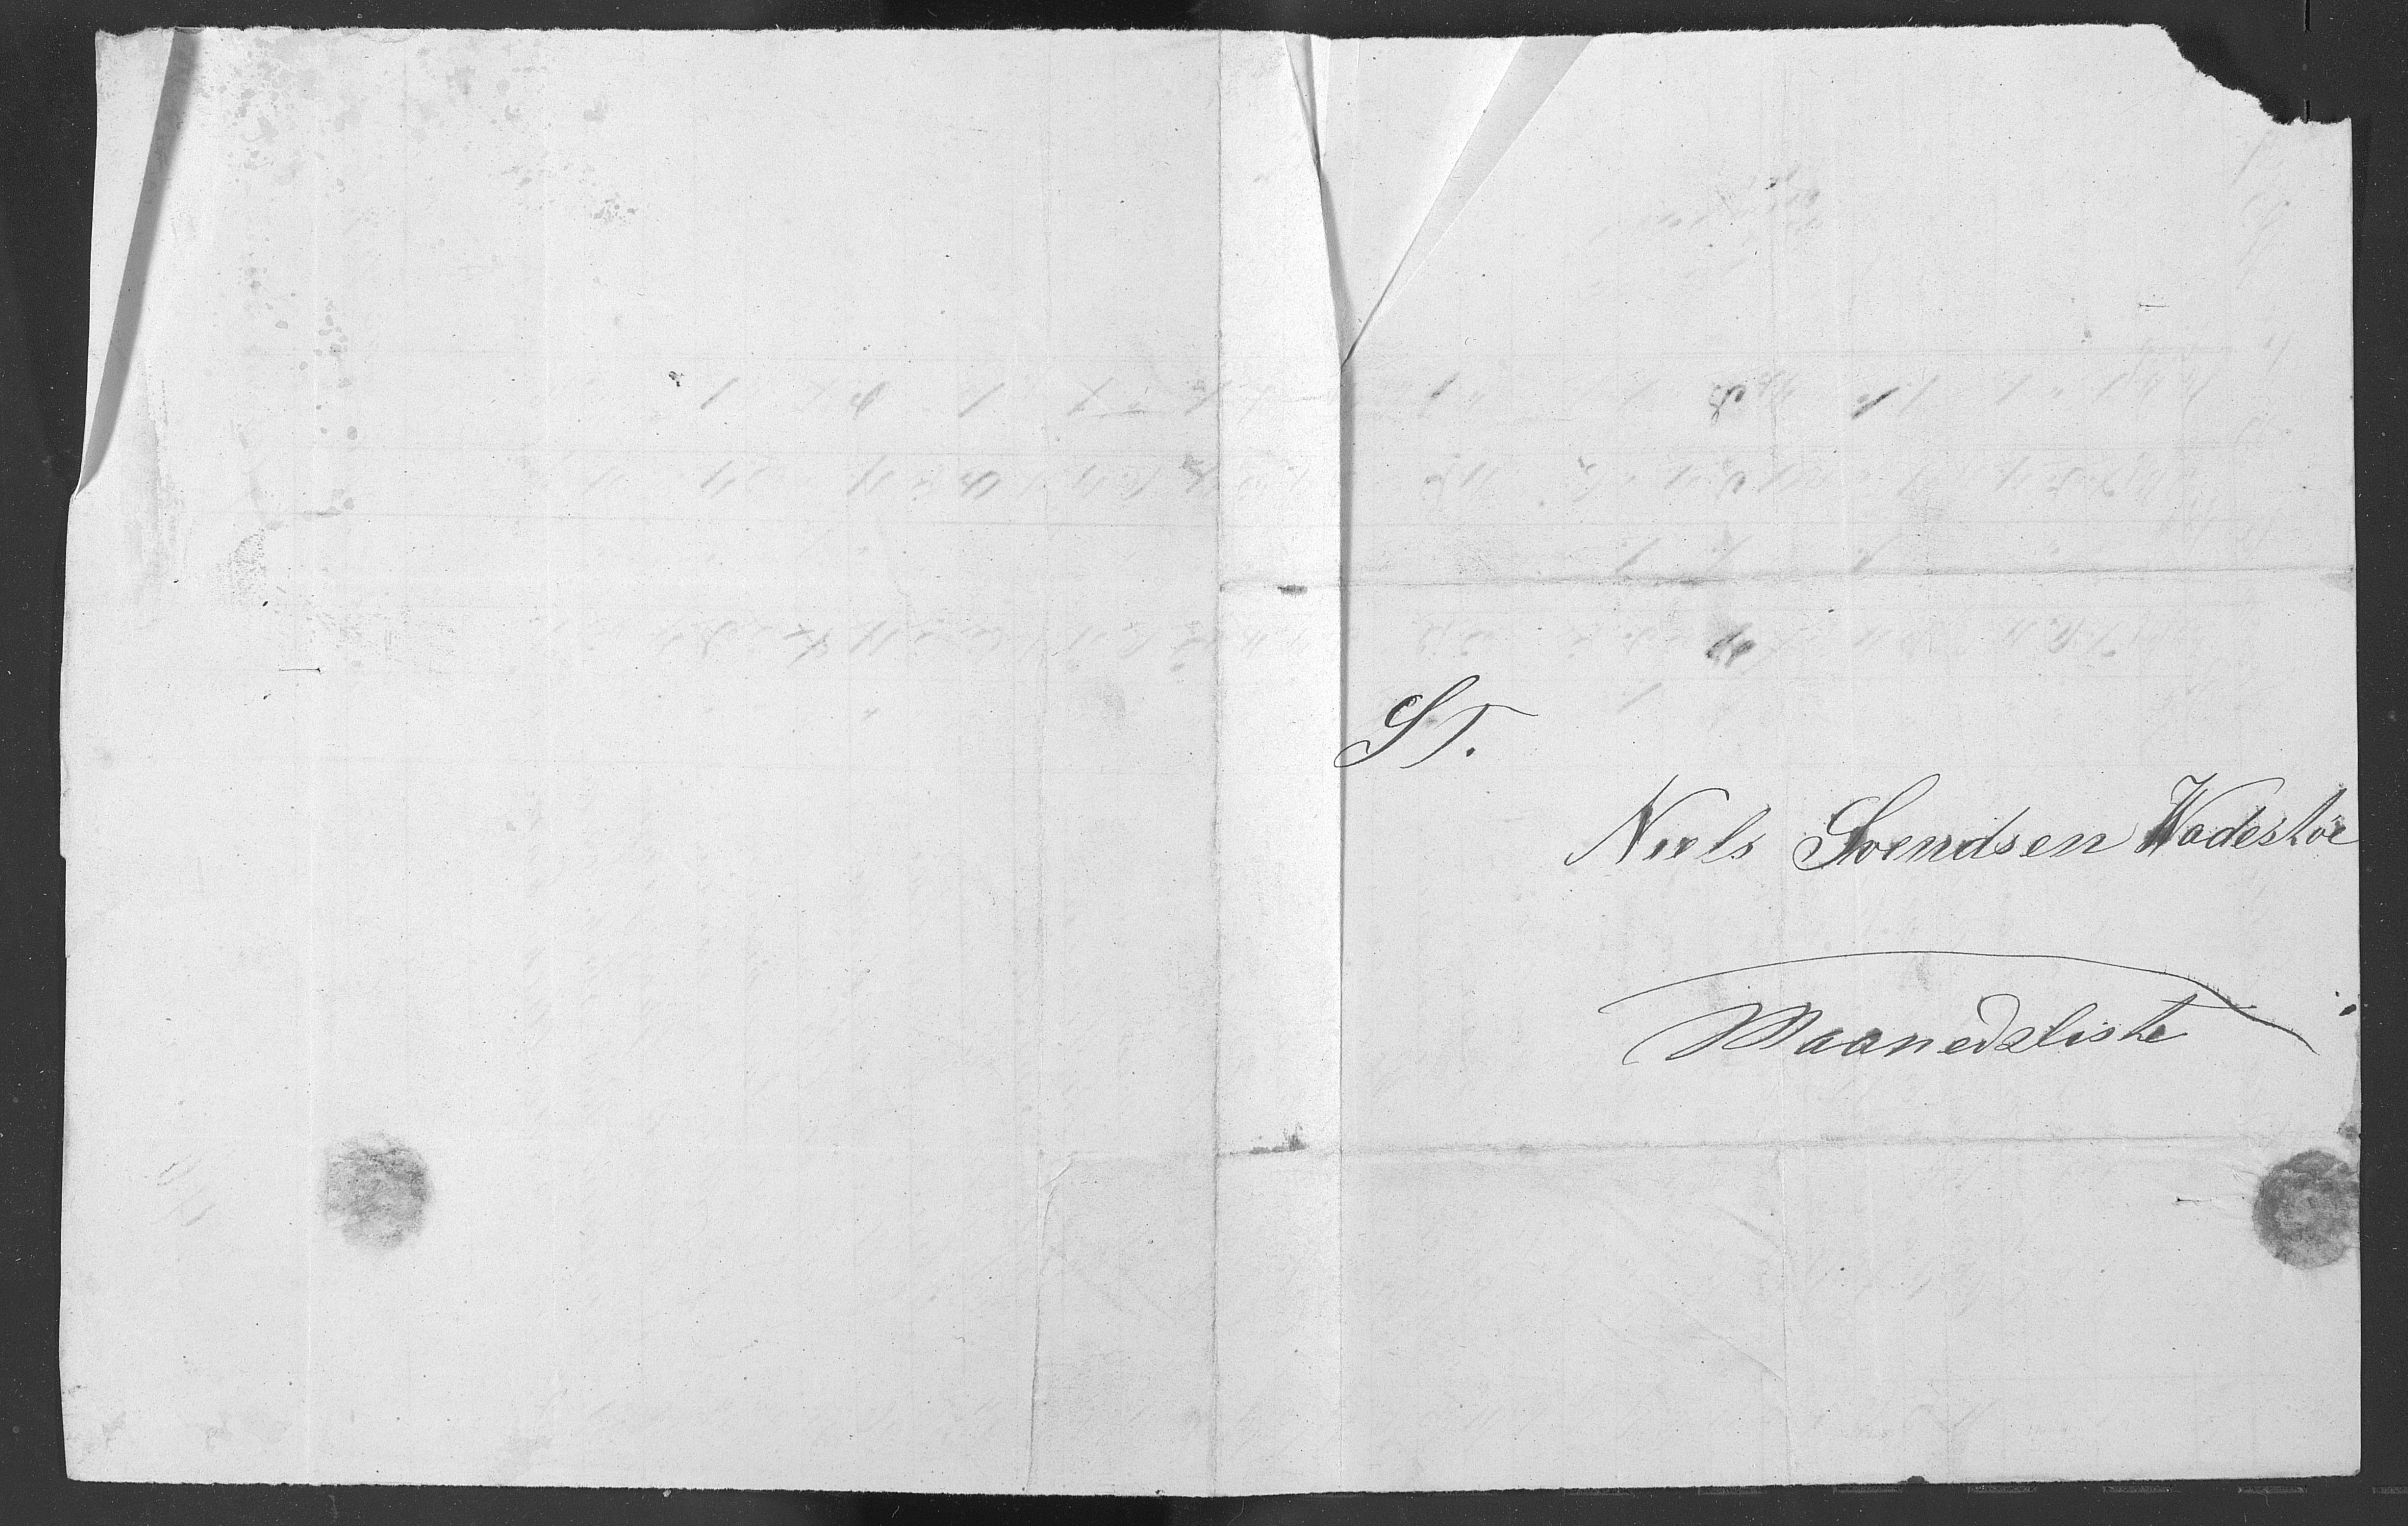 ST.
Niels Svendsen Wadeshøe
Maanedsliste